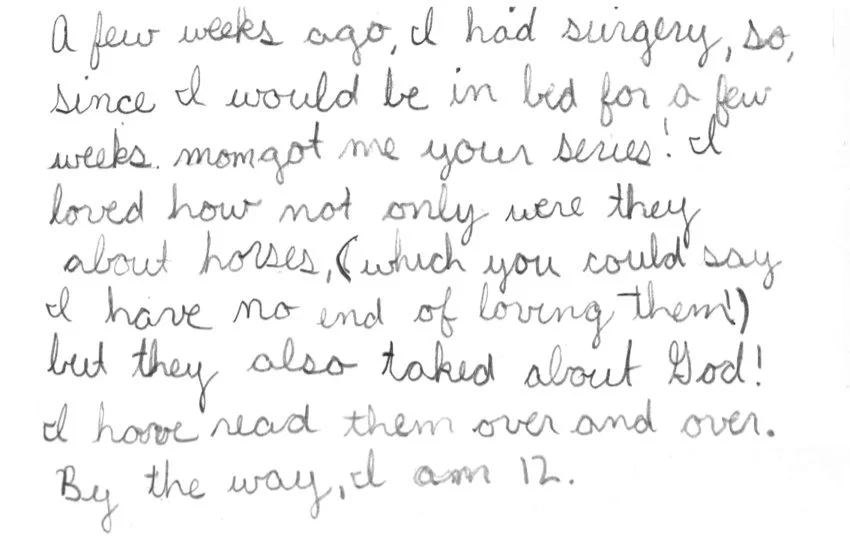 A few weeks ago, I had surgery, so,
since I would be in bed for a few
weeks. mom got me your series! I
loved how not only were they
about horses, (which you could say
I have no end of loving them!)
but they also taked about God!
I have read them over and over.
By the way, I am 12.